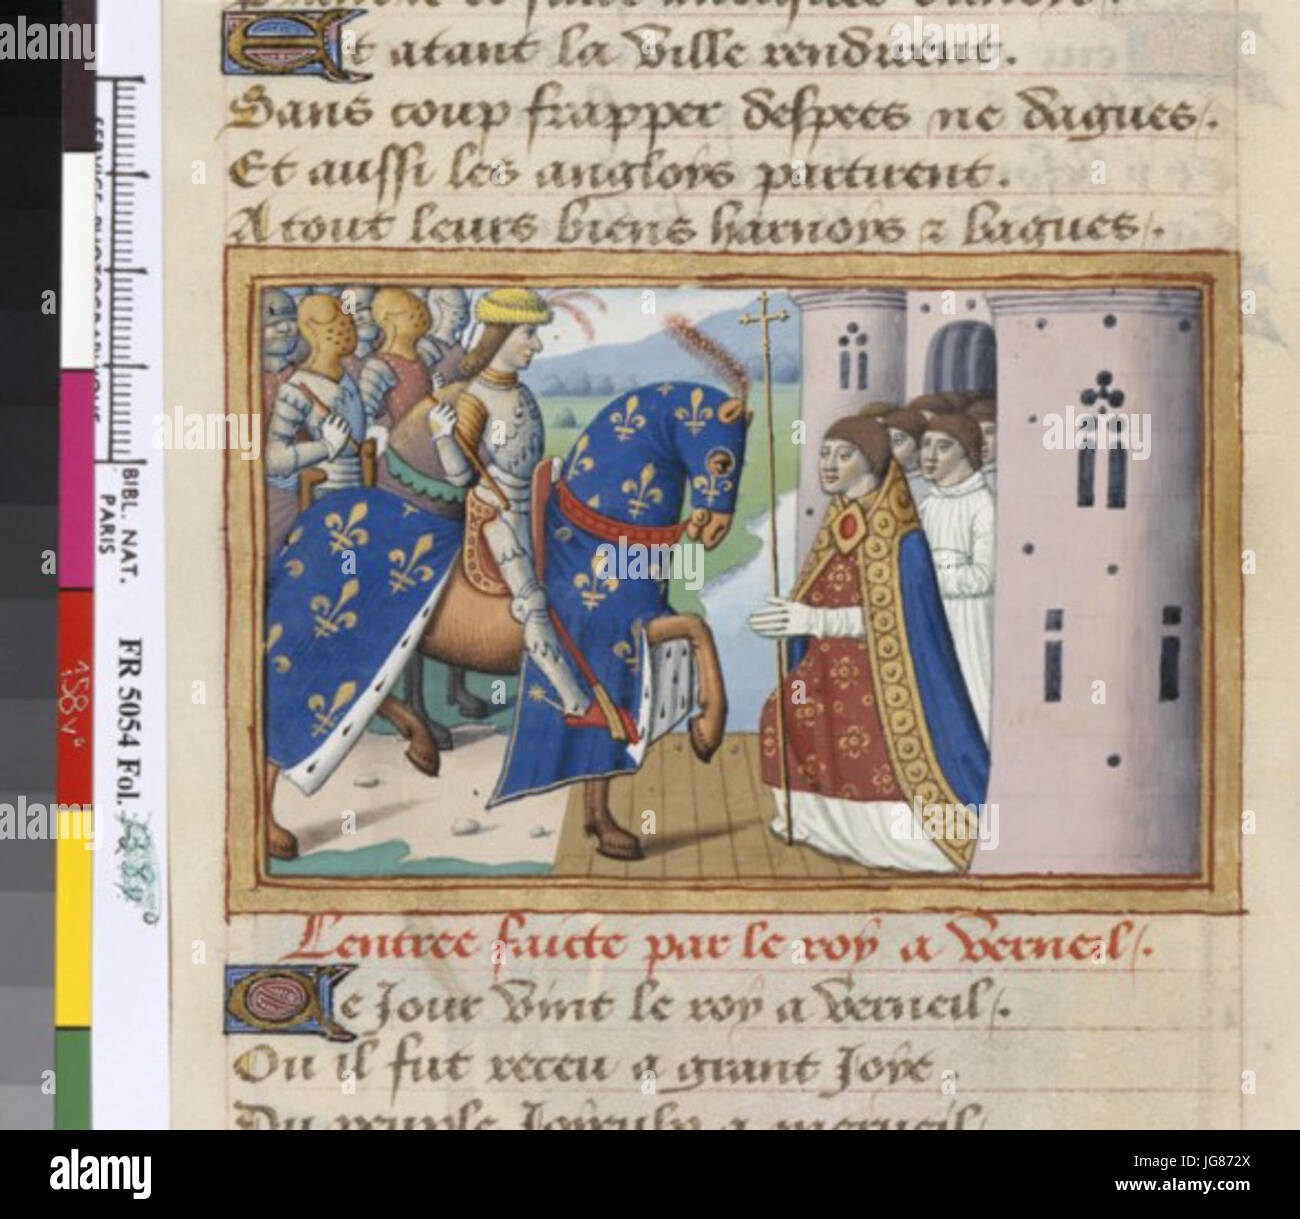 Et atant la ville rendirent.
Sans coup frapper despees ne dagues/.
Et aussi les angloys partirent.
A tout leurs biens harnoys & bagues/.
Lentree faicte par le roy a Verneil/.
Ce Jour vint le roy a verneil/.
Ou il fut receu a grant Joye.
Du peuple
BIBL. NAT.
PARIS
FR 5054 Fol.
158vº
alamy
Image ID: JG872X
www.alamy.com